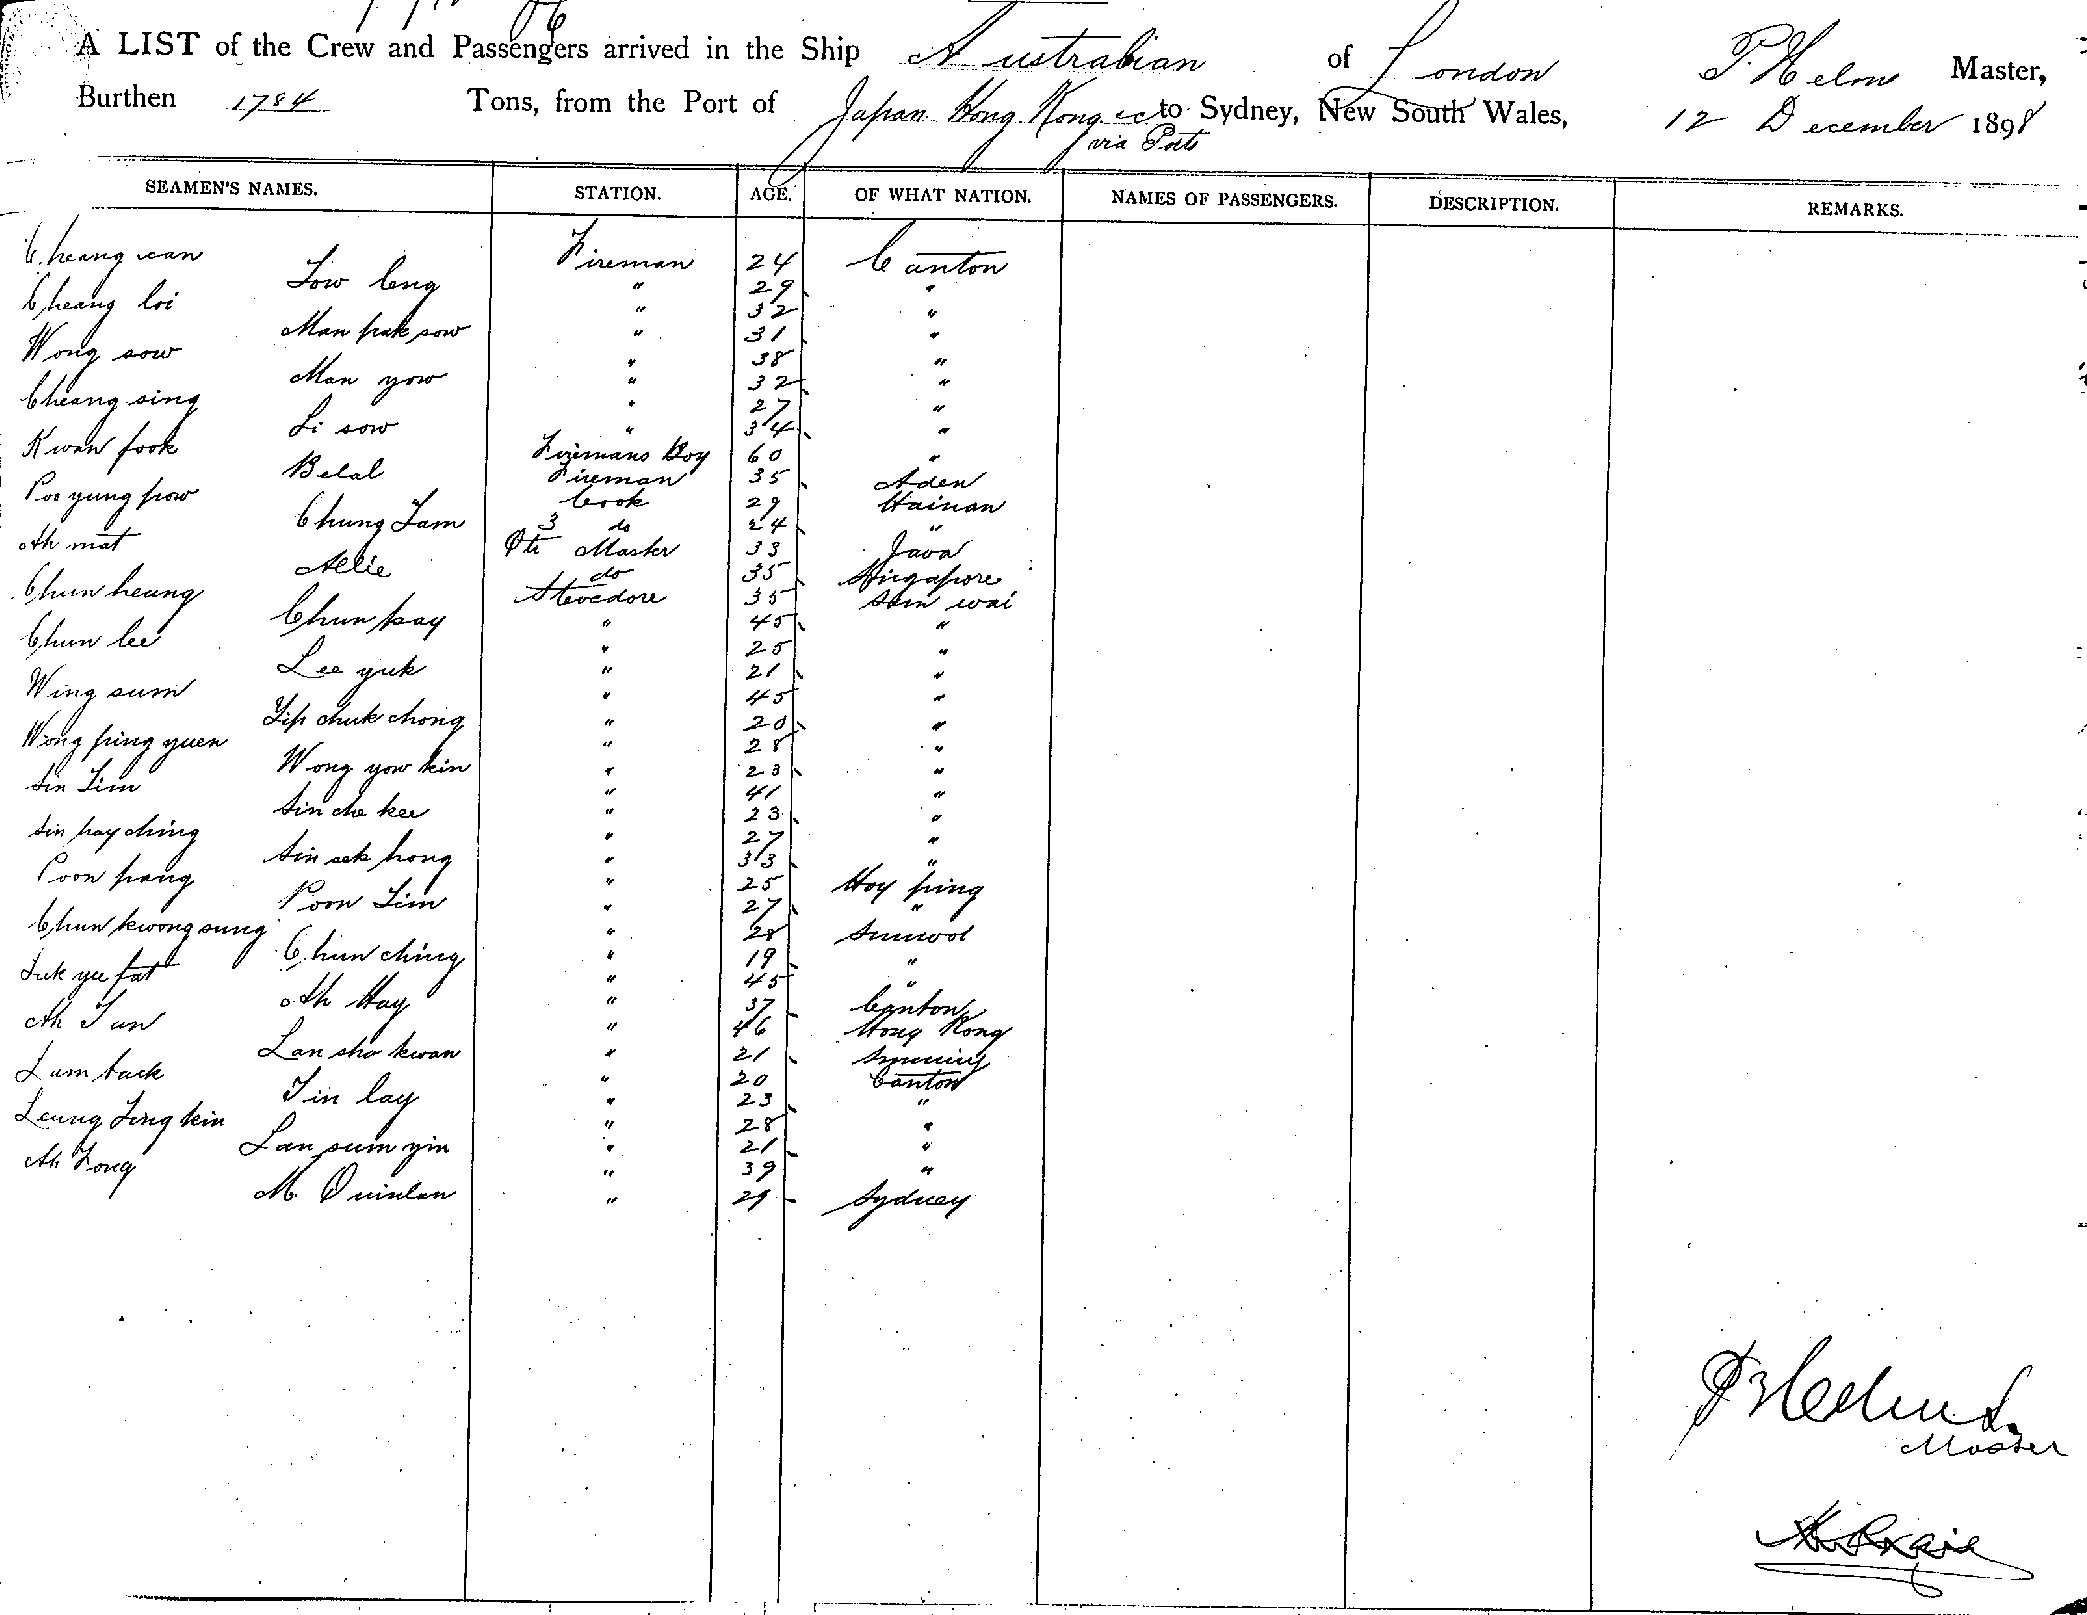 A LIST of the Crew and Passengers arrived in the Ship Australian of London P. Helm Master,
Burthen 1784 Tons, from the Port of Japan Hong Kong &c to Sydney, New South Wales, 12 December 1898
via Ports
SEAMEN'S NAMES. STATION. AGE. OF WHAT NATION. NAMES OF PASSENGERS. DESCRIPTION. REMARKS.
Cheang wan Fireman 24 Canton
Tow leng " 29 "
Cheang loi " 32 "
Man pak sow " 31 "
Wong sow " 38 "
Man yow " 32 "
Cheang sing " 27 "
Li sow " 34 "
Kwan fook Firemans Boy 60 "
Belal Fireman 35 Aden
Poo yung pow Cook 29 Hainan
Chung Tam 3 do 24 "
Ah mat Qtr Master 33 Java
Allie do 35 Singapore
Chun heang Stevedore 35 Sin wai
Chun pay " 45 "
Chun lee " 25 "
Lee yuk " 21 "
Wing sum " 45 "
Yip chuk chong " 20 "
Wong ping yuen " 28 "
Wong yow kin " 23 "
Sin Tim " 41 "
Sin che kee " 23 "
Sin pay ching " 27 "
Sin sek hong " 33 "
Poon pang " 25 Hoy ping
Poon Tim " 27 "
Chun kwong sung " 28 Sunwoi
Chun ching " 19 "
Tuk yee fat " 45 "
Ah Hay " 37 Canton
Ah Tun " 46 Hong Kong
Lan sho kwan " 21 Sunning
Lam back " 20 Canton
Tin lay " 23 "
Leung Ting kin " 28 "
Lan sum yin " 21 "
Ah Fong " 39 "
M. Quinlan " 29 Sydney
P Helms
Master